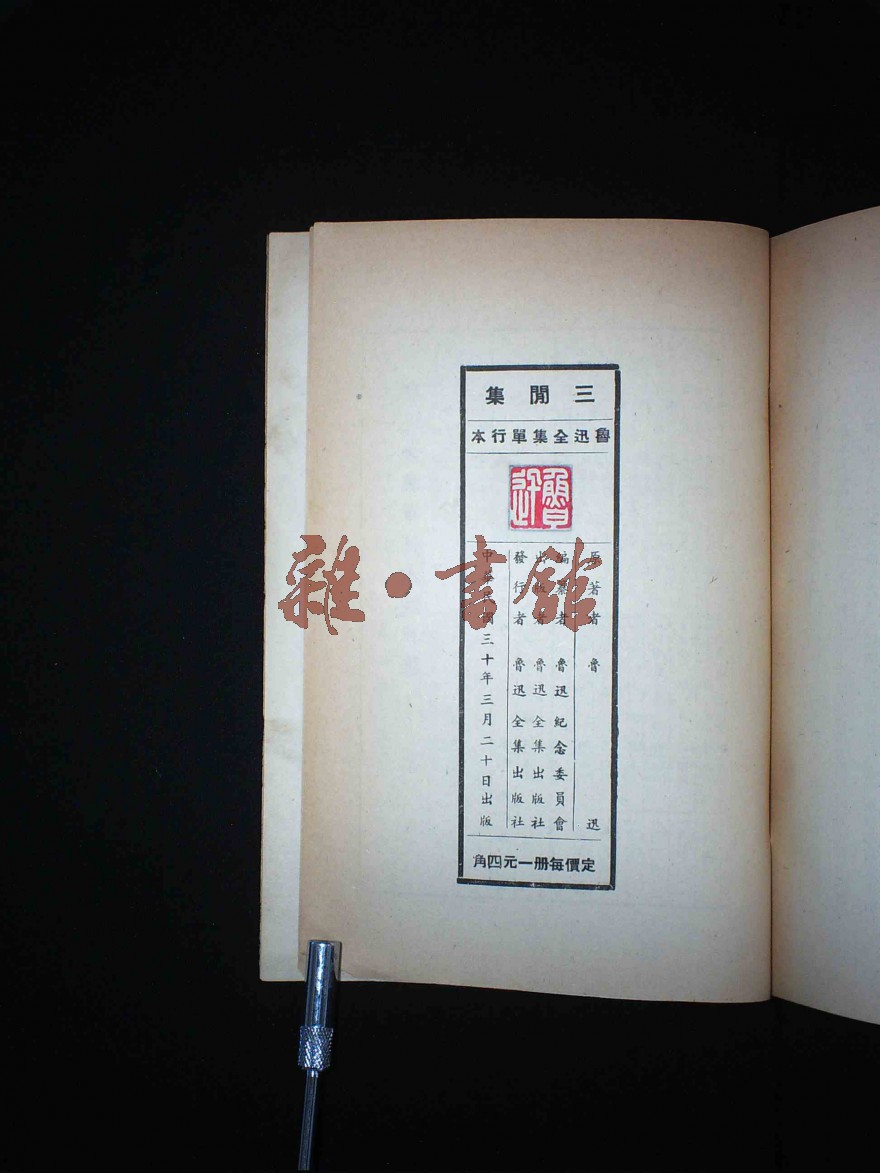 三閒集
魯迅全集單行本
魯迅
原著者 魯迅
編纂者 魯迅紀念委員會
出版者 魯迅全集出版社
發行者 魯迅全集出版社
中華民國三十年三月二十日出版
定價每册一元四角
雜·書館